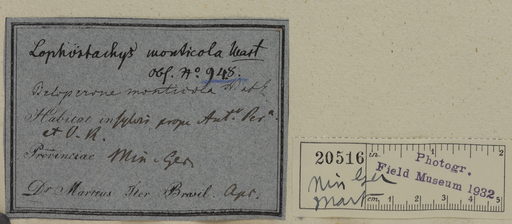 Lophostachys monticola
Obs. No 948.
Beloperone monticola
Habitat in sylvis prope
et V. R.
Provinciae Min Ger
Dr Martius Iter Brasil. Apr.
20516
in. 1 2
Photogr.
Field Museum 1932
Min Ger
Mart
cm. 1 2 3 4 5